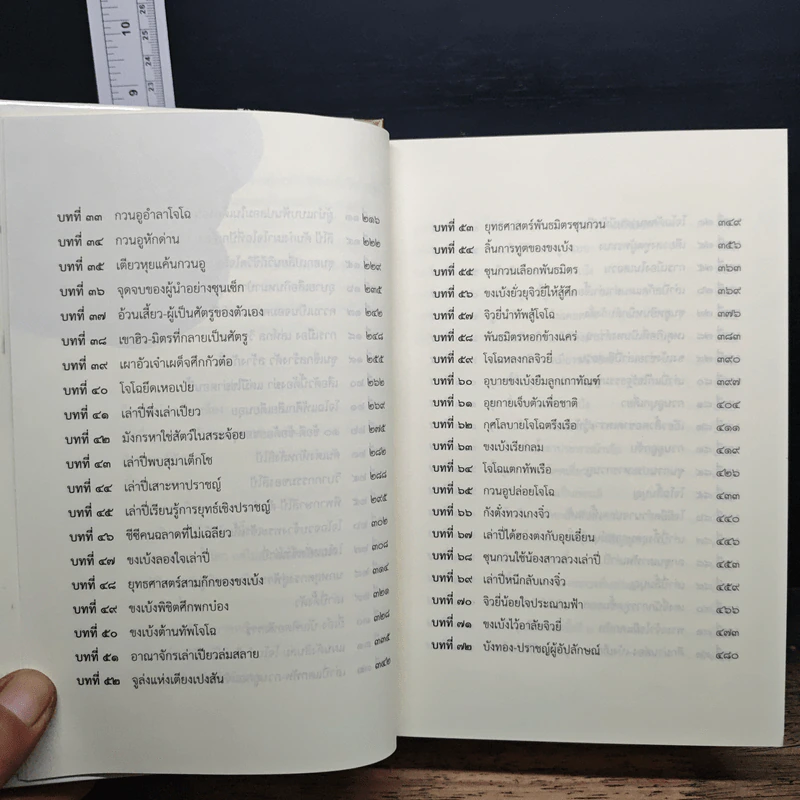 10
9
26
25
24
23
บทที่ ๓๓ กวนอูอำลาโจโฉ ๒๑๖
บทที่ ๓๔ กวนอูหักด่าน ๒๒๒
บทที่ ๓๕ เตียวหุยแค้นกวนอู ๒๒๙
บทที่ ๓๖ จุดจบของผู้นำอย่างซุนเซ็ก ๒๓๕
บทที่ ๓๗ อ้วนเสี้ยว-ผู้เป็นศัตรูของตัวเอง ๒๔๒
บทที่ ๓๘ เขาฮิว-มิตรที่กลายเป็นศัตรู ๒๔๘
บทที่ ๓๙ เผาอัวเจ๋าเผด็จศึกกัวต๋อ ๒๕๕
บทที่ ๔๐ โจโฉยึดเหอเป่ย ๒๖๒
บทที่ ๔๑ เล่าปี่พึ่งเล่าเปียว ๒๖๙
บทที่ ๔๒ มังกรหาใช่สัตว์ในสระจ้อย ๒๗๕
บทที่ ๔๓ เล่าปี่พบสุมาเต็กโช ๒๘๒
บทที่ ๔๔ เล่าปี่เสาะหาปราชญ์ ๒๘๘
บทที่ ๔๕ เล่าปี่เรียนรู้การยุทธ์เชิงปราชญ์ ๒๙๕
บทที่ ๔๖ ชีซีคนฉลาดที่ไม่เฉลียว ๓๐๒
บทที่ ๔๗ ขงเบ้งลองใจเล่าปี่ ๓๐๘
บทที่ ๔๘ ยุทธศาสตร์สามก๊กของขงเบ้ง ๓๑๔
บทที่ ๔๙ ขงเบ้งพิชิตศึกพกบ๋อง ๓๒๑
บทที่ ๕๐ ขงเบ้งต้านทัพโจโฉ ๓๒๘
บทที่ ๕๑ อาณาจักรเล่าเปียวล่มสลาย ๓๓๕
บทที่ ๕๒ จูล่งแห่งเตียงเปงสัน ๓๔๒
บทที่ ๕๓ ยุทธศาสตร์พันธมิตรซุนกวน ๓๔๙
บทที่ ๕๔ ลิ้นการทูตของขงเบ้ง ๓๕๖
บทที่ ๕๕ ซุนกวนเลือกพันธมิตร ๓๖๓
บทที่ ๕๖ ขงเบ้งยั่วยุจิวยี่ให้สู้ศึก ๓๖๙
บทที่ ๕๗ จิวยี่นำทัพสู้โจโฉ ๓๗๖
บทที่ ๕๘ พันธมิตรหอกข้างแคร่ ๓๘๓
บทที่ ๕๙ โจโฉหลงกลจิวยี่ ๓๙๐
บทที่ ๖๐ อุบายขงเบ้งยืมลูกเกาทัณฑ์ ๓๙๗
บทที่ ๖๑ อุยกายเจ็บตัวเพื่อชาติ ๔๐๔
บทที่ ๖๒ กุศโลบายโจโฉตรึงเรือ ๔๑๑
บทที่ ๖๓ ขงเบ้งเรียกลม ๔๑๙
บทที่ ๖๔ โจโฉแตกทัพเรือ ๔๒๖
บทที่ ๖๕ กวนอูปล่อยโจโฉ ๔๓๓
บทที่ ๖๖ กังตั๋งทวงเกงจิ๋ว ๔๔๐
บทที่ ๖๗ เล่าปี่ได้ฮองตงกับอุยเอี๋ยน ๔๔๖
บทที่ ๖๘ ซุนกวนใช้น้องสาวลวงเล่าปี่ ๔๕๓
บทที่ ๖๙ เล่าปี่หนีกลับเกงจิ๋ว ๔๕๙
บทที่ ๗๐ จิวยี่น้อยใจประณามฟ้า ๔๖๖
บทที่ ๗๑ ขงเบ้งไว้อาลัยจิวยี่ ๔๗๓
บทที่ ๗๒ บังทอง-ปราชญ์ผู้อัปลักษณ์ ๔๘๐